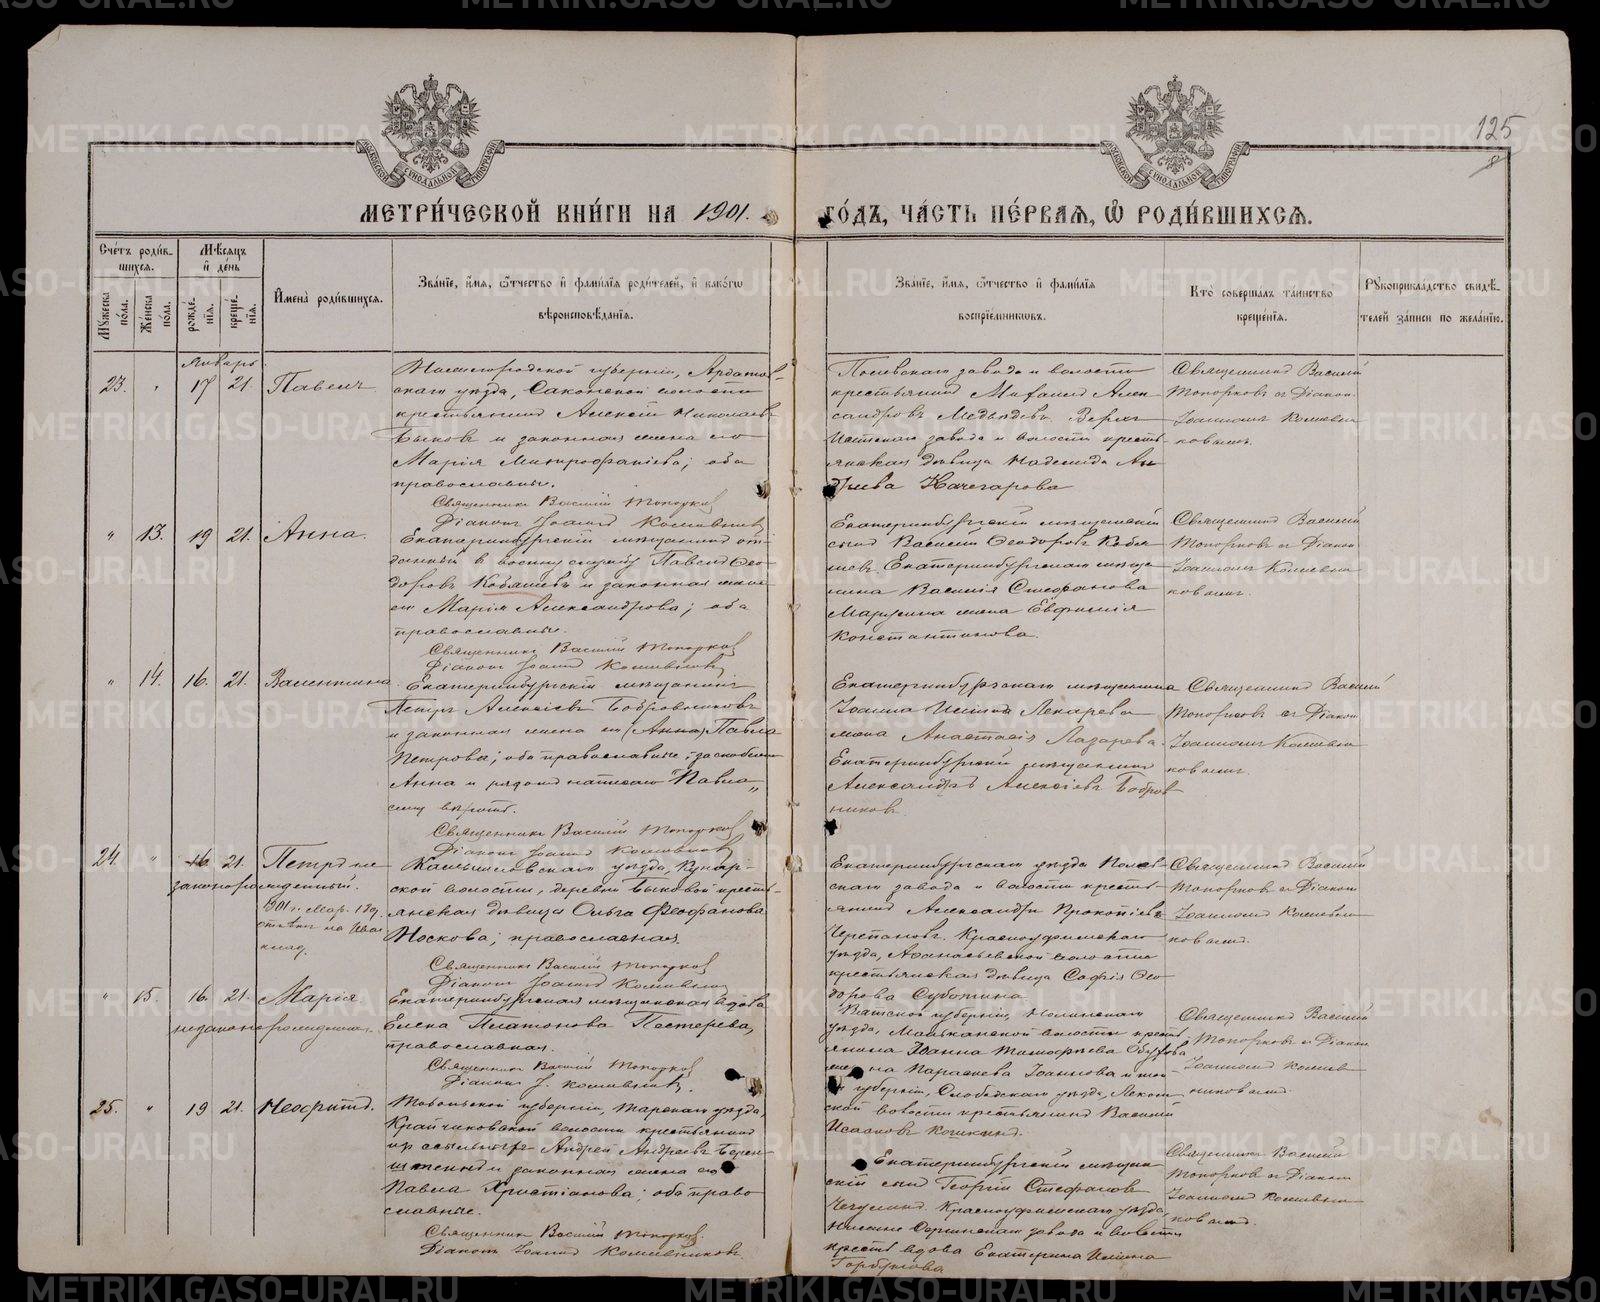 125
МЕТРИ́ЧЕСКОЙ КНИ́ГИ НА 1901. ГО́ДЪ, ЧА́СТЬ ПЕ́РВАЯ, Ѽ РОДИ́ВШИХСЯ.
Счётъ роди́в-
шихся.
Мѣсяцъ
и де́нь
Му́жеска по́ла.
Же́нска по́ла.
рожде́нія.
креще́нія.
Имена̀ роди́вшихся.
Зва́ніе, и́мя, ѻ́тчество и фами́лія роди́телей, и како́гѡ
вѣроисповѣ́данія.
Зва́ніе, и́мя, ѻ́тчество и фами́лія
воспріе́мникѡвъ.
Кто̀ соверша́лъ та́инство
креще́нія.
Рукоприкла́дство свидѣ́-
телей за́писи по жела́нію.
Январь
23. " 17 21. Павелъ
Нижегородской губерніи, Ардатов-
скаго уѣзда, Саконской волости
крестьянинъ Алексій Николаевъ
Быковъ и законная жена его
Марія Митрофаніева; оба
православные.
Священникъ Василій Топорковъ
Діаконъ Іоаннъ
Полевскаго завода и волости
крестьянинъ Михаилъ Алек-
сандровъ Медвѣдевъ. Верхъ
Исетскаго завода и волости кресть-
янская дѣвица Надежда
Качегарова
Священникъ Василій
Топорковъ съ Діакон
Іоанномъ
" 13. 19 21. Анна.
Екатеринбургскій мѣщанинъ от-
данный въ военну службу Павелъ Ѳео-
доровъ Кобяшевъ и законная жена
его Марія Александрова; оба
православные.
Священникъ Василій Топорковъ
Діаконъ Іоаннъ
Екатеринбургскій мѣщанскій
сынъ Василій Ѳеодоровъ Кобя-
шевъ. Екатеринбургскаго мѣща-
нина Василія Стефанова
жена Евфимія
Константинова.
Священникъ Василій
Топорковъ съ Діакон
Іоанномъ
" 14. 16. 21. Валентина
Екатеринбургскій мѣщанинъ
Петръ Алексіевъ Бобровниковъ
и законная жена его (Анна) Павла
Петрова; оба православные; за скобками
Анна и рядомъ написано Павла
вѣрить.
Священникъ Василій Топорковъ
Діаконъ Іоаннъ
Екатеринбургскаго мѣщанина
Іоанна Лекарева
жена Анастасія Лазарева.
Екатеринбургскій мѣщанинъ
Александръ Алексіевъ Бобров
никовъ
Священникъ Василій
Топорковъ съ Діакон
Іоанномъ
24. " 16. 21. Петръ не
законорожденный.
1901 г. Мар.
Камышловскаго уѣзда, Кунар-
ской волости, деревни Быковой кресть-
янская дѣвица Ольга Ѳеофанова
Носкова; православная.
Священникъ Василій Топорковъ
Діаконъ Іоаннъ
Екатеринбургскаго уѣзда Полев-
скаго завода и волости кресть-
янинъ Александръ Прокопіевъ
Черепановъ. Красноуфимскаго
уѣзда, Аѳанасьевской волости
крестьянская дѣвица Софія Ѳео
дорова Суботина.
Священникъ Василій
Топорковъ съ Діакон
Іоанномъ
" 15. 16. 21. Марія
незаконнорожденная.
Екатеринбургская мѣщанская вдова
Елена Платонова Пастерева,
православная.
Священникъ Василій Топорковъ
Діаконъ І.
Вятской губерніи, Нолинскаго
уѣзда, волости кресть
янина Іоанна Тимофѣева
жена Параскева Іоаннова и той
же губерніи, Слободскаго уѣзда,
ской волости крестьянинъ Василій
Исааковъ Кошкинъ.
Священникъ Василій
Топорковъ съ Діакон
Іоанномъ
25. " 19 21. Неофитъ.
Тобольской губерніи, Тарскаго уѣзда,
Крайчиковской волости крестьянинъ
изъ ссыльныхъ Андрей Андреевъ
и законная жена его
Павла Христіанова; оба право
славные.
Священникъ Василій Топорковъ
Діаконъ Іоаннъ
Екатеринбургскій мѣщан-
скій сынъ Георгій Стефановъ
Красноуфимскаго уѣзда,
Нижне Сергинскаго завода и волости
крест. вдова Екатерина
Горбунова
Священникъ Василій
Топорковъ съ Діакон
Іоанномъ
METRIKI.GASO-URAL.RU